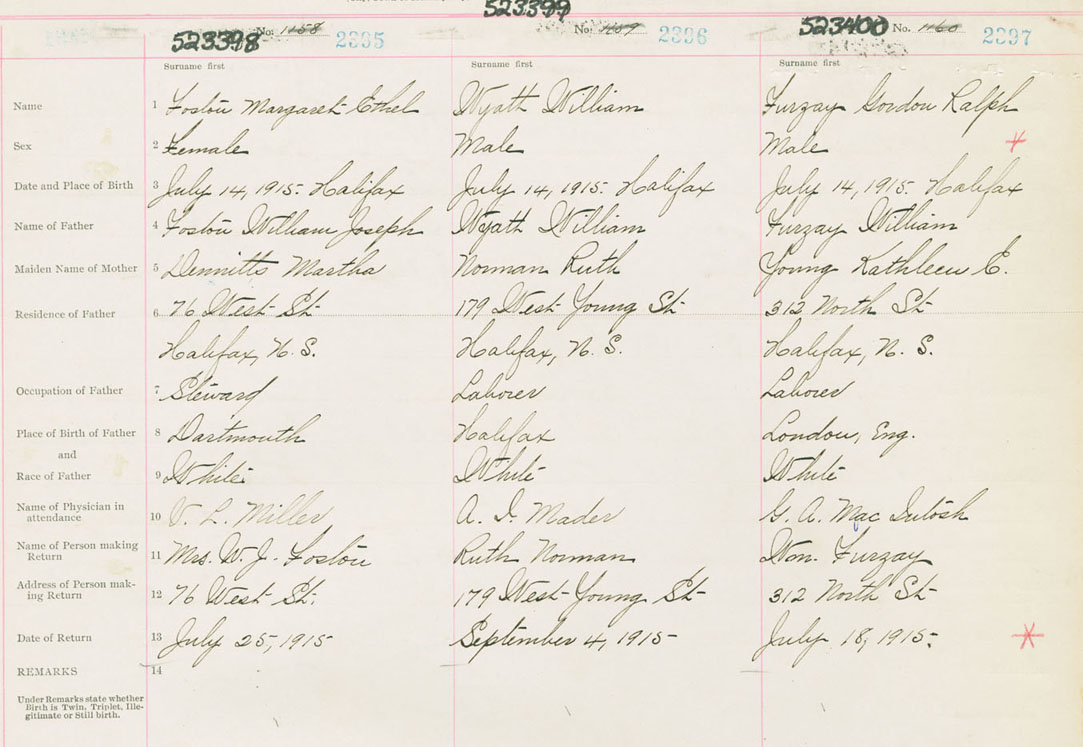 523399
523398 No: 1158 2395 No: 1159 2396 523400 No. 1160 2397
Surname first Surname first Surname first
Name 1 Foston Margaret Ethel Wyatt William Furzay Gordon Ralph
Sex 2 Female Male Male
Date and Place of Birth 3 July 14, 1915. Halifax July 14, 1915. Halifax July 14, 1915. Halifax
Name of Father 4 Foston William Joseph Wyatt William Furzay William
Maiden Name of Mother 5 Martha Norman Ruth Young Kathleen E.
Residence of Father 6 76 West St 179 West Young St 312 North St
Halifax, N. S. Halifax, N. S. Halifax, N. S.
Occupation of Father 7 Steward Laborer Laborer
Place of Birth of Father 8 Dartmouth Halifax London, Eng.
and
Race of Father 9 White White White
Name of Physician in
attendance 10 V. L. Miller A. I. Mader G. A. Mac Intosh
Name of Person making
Return 11 Mrs. W. J. Foston Ruth Norman Wm. Furzay
Address of Person mak-
ing Return 12 76 West St. 179 West Young St 312 North St
Date of Return 13 July 25, 1915 September 4, 1915 July 18, 1915.
REMARKS 14
Under Remarks state whether
Birth is Twin, Triplet, Ille-
gitimate or Still birth.